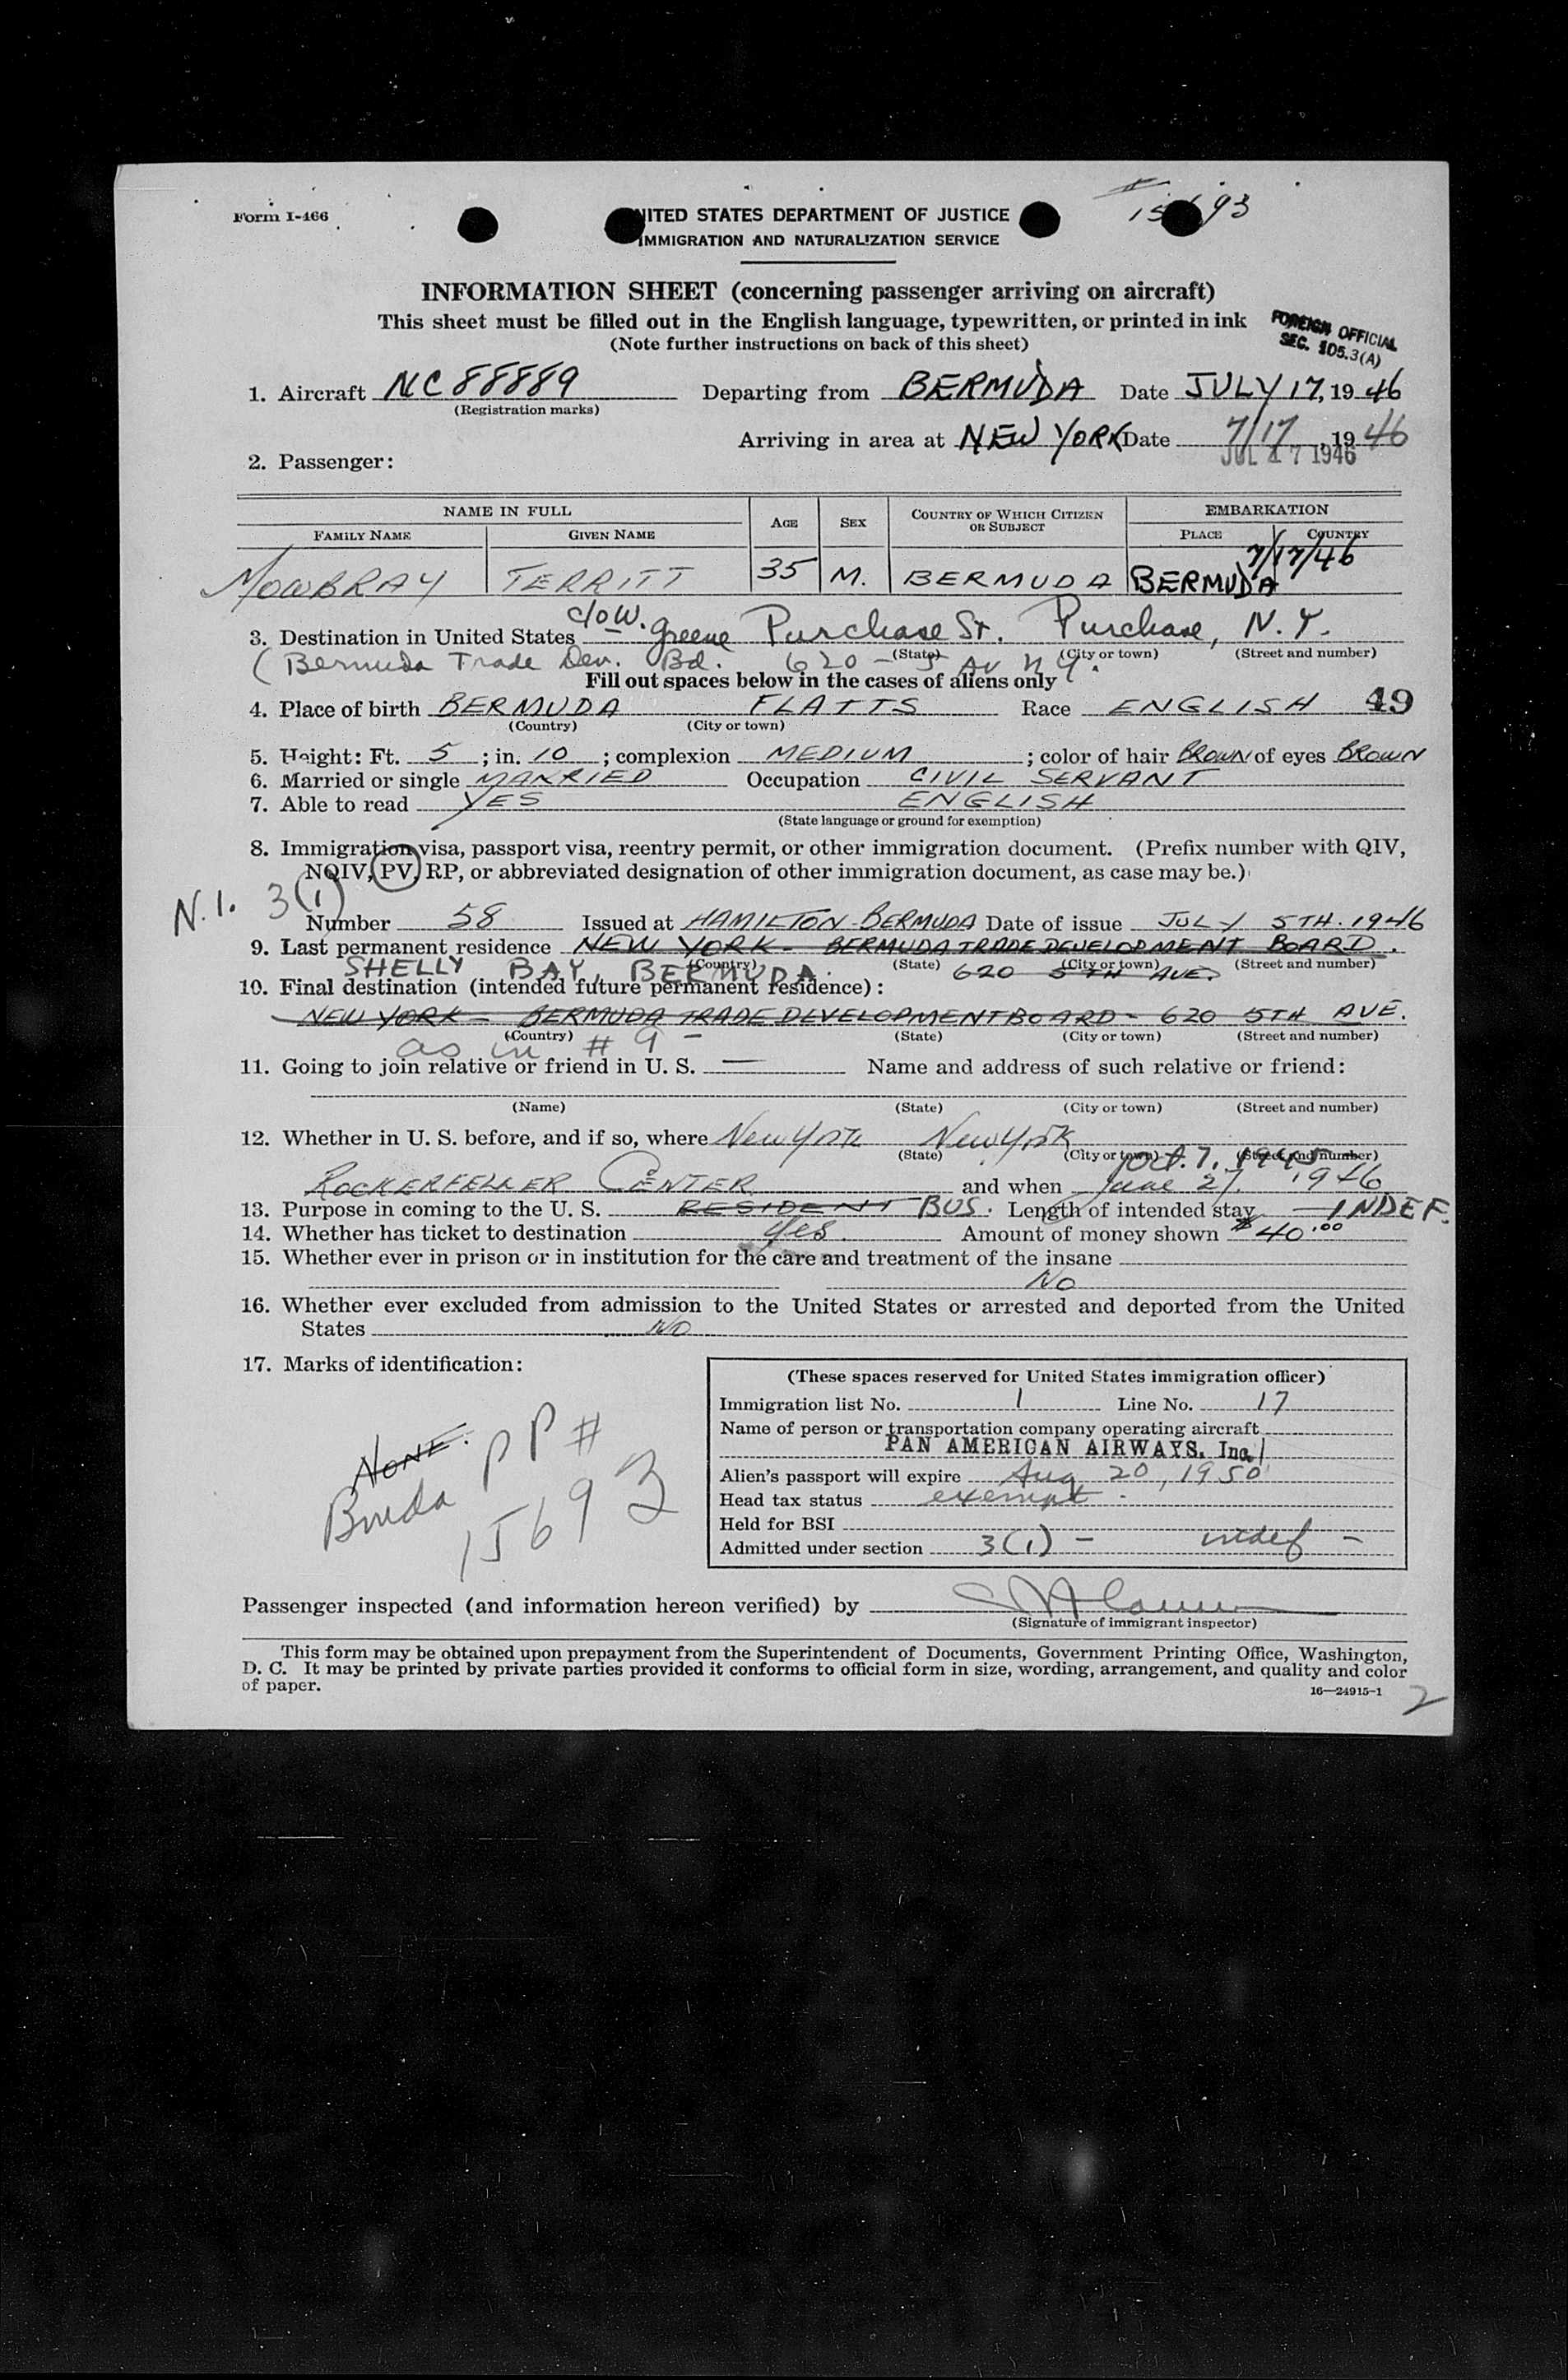 Form I-466
UNITED STATES DEPARTMENT OF JUSTICE
IMMIGRATION AND NATURALIZATION SERVICE
INFORMATION SHEET (concerning passenger arriving on aircraft)
This sheet must be filled out in the English language, typewritten, or printed in ink
(Note further instructions on back of this sheet)
FOREIGN OFFICIAL
SEC. 105.3(A)
1. Aircraft NC 88889 Departing from BERMUDA Date JULY 17, 1946
(Registration marks)
Arriving in area at NEW YORK Date 7/17, 1946
JUL 17 1946
2. Passenger:
NAME IN FULL AGE SEX COUNTRY OF WHICH CITIZEN OR SUBJECT EMBARKATION
FAMILY NAME GIVEN NAME PLACE COUNTRY
7/17/46
MOWBRAY TERRITT 35 M. BERMUDA BERMUDA
3. Destination in United States c/o W. Greene Purchase St. Purchase, N.Y.
(State) (City or town) (Street and number)
(Bermuda Trade Dev. Bd. 620 - 5 Av N Y.
Fill out spaces below in the cases of aliens only
4. Place of birth BERMUDA FLATTS Race ENGLISH 49
(Country) (City or town)
5. Height: Ft. 5 ; in. 10 ; complexion MEDIUM ; color of hair BROWN of eyes BROWN
6. Married or single MARRIED Occupation CIVIL SERVANT
7. Able to read YES ENGLISH
(State language or ground for exemption)
8. Immigration visa, passport visa, reentry permit, or other immigration document. (Prefix number with QIV,
NQIV, PV, RP, or abbreviated designation of other immigration document, as case may be.)
N.I. 3(1)
Number 58 Issued at HAMILTON-BERMUDA Date of issue JULY 5TH. 1946
9. Last permanent residence NEW YORK - BERMUDA TRADE DEVELOPMENT BOARD.
(Country) (State) (City or town) (Street and number)
SHELLY BAY, BERMUDA. 620 5TH AVE.
10. Final destination (intended future permanent residence):
NEW YORK - BERMUDA TRADE DEVELOPMENT BOARD - 620 5TH AVE.
(Country) (State) (City or town) (Street and number)
as in # 9 -
11. Going to join relative or friend in U. S. — Name and address of such relative or friend:
(Name) (State) (City or town) (Street and number)
12. Whether in U. S. before, and if so, where New York New York
(State) (City or town) (Street and number)
Oct. 7, 1945
ROCKERFELLER CENTER and when June 27. 1946
13. Purpose in coming to the U. S. RESIDENT BUS. Length of intended stay INDEF.
14. Whether has ticket to destination yes. Amount of money shown $40.00
15. Whether ever in prison or in institution for the care and treatment of the insane
NO
16. Whether ever excluded from admission to the United States or arrested and deported from the United
States NO
17. Marks of identification:
NONE.
Bmda PP #
15693
(These spaces reserved for United States immigration officer)
Immigration list No. 1 Line No. 17
Name of person or transportation company operating aircraft
PAN AMERICAN AIRWAYS, Inc.
Alien's passport will expire Aug 20, 1950
Head tax status exempt -
Held for BSI
Admitted under section 3(1) - indef -
Passenger inspected (and information hereon verified) by
(Signature of immigrant inspector)
This form may be obtained upon prepayment from the Superintendent of Documents, Government Printing Office, Washington,
D. C. It may be printed by private parties provided it conforms to official form in size, wording, arrangement, and quality and color
of paper.
16—24915-1
2